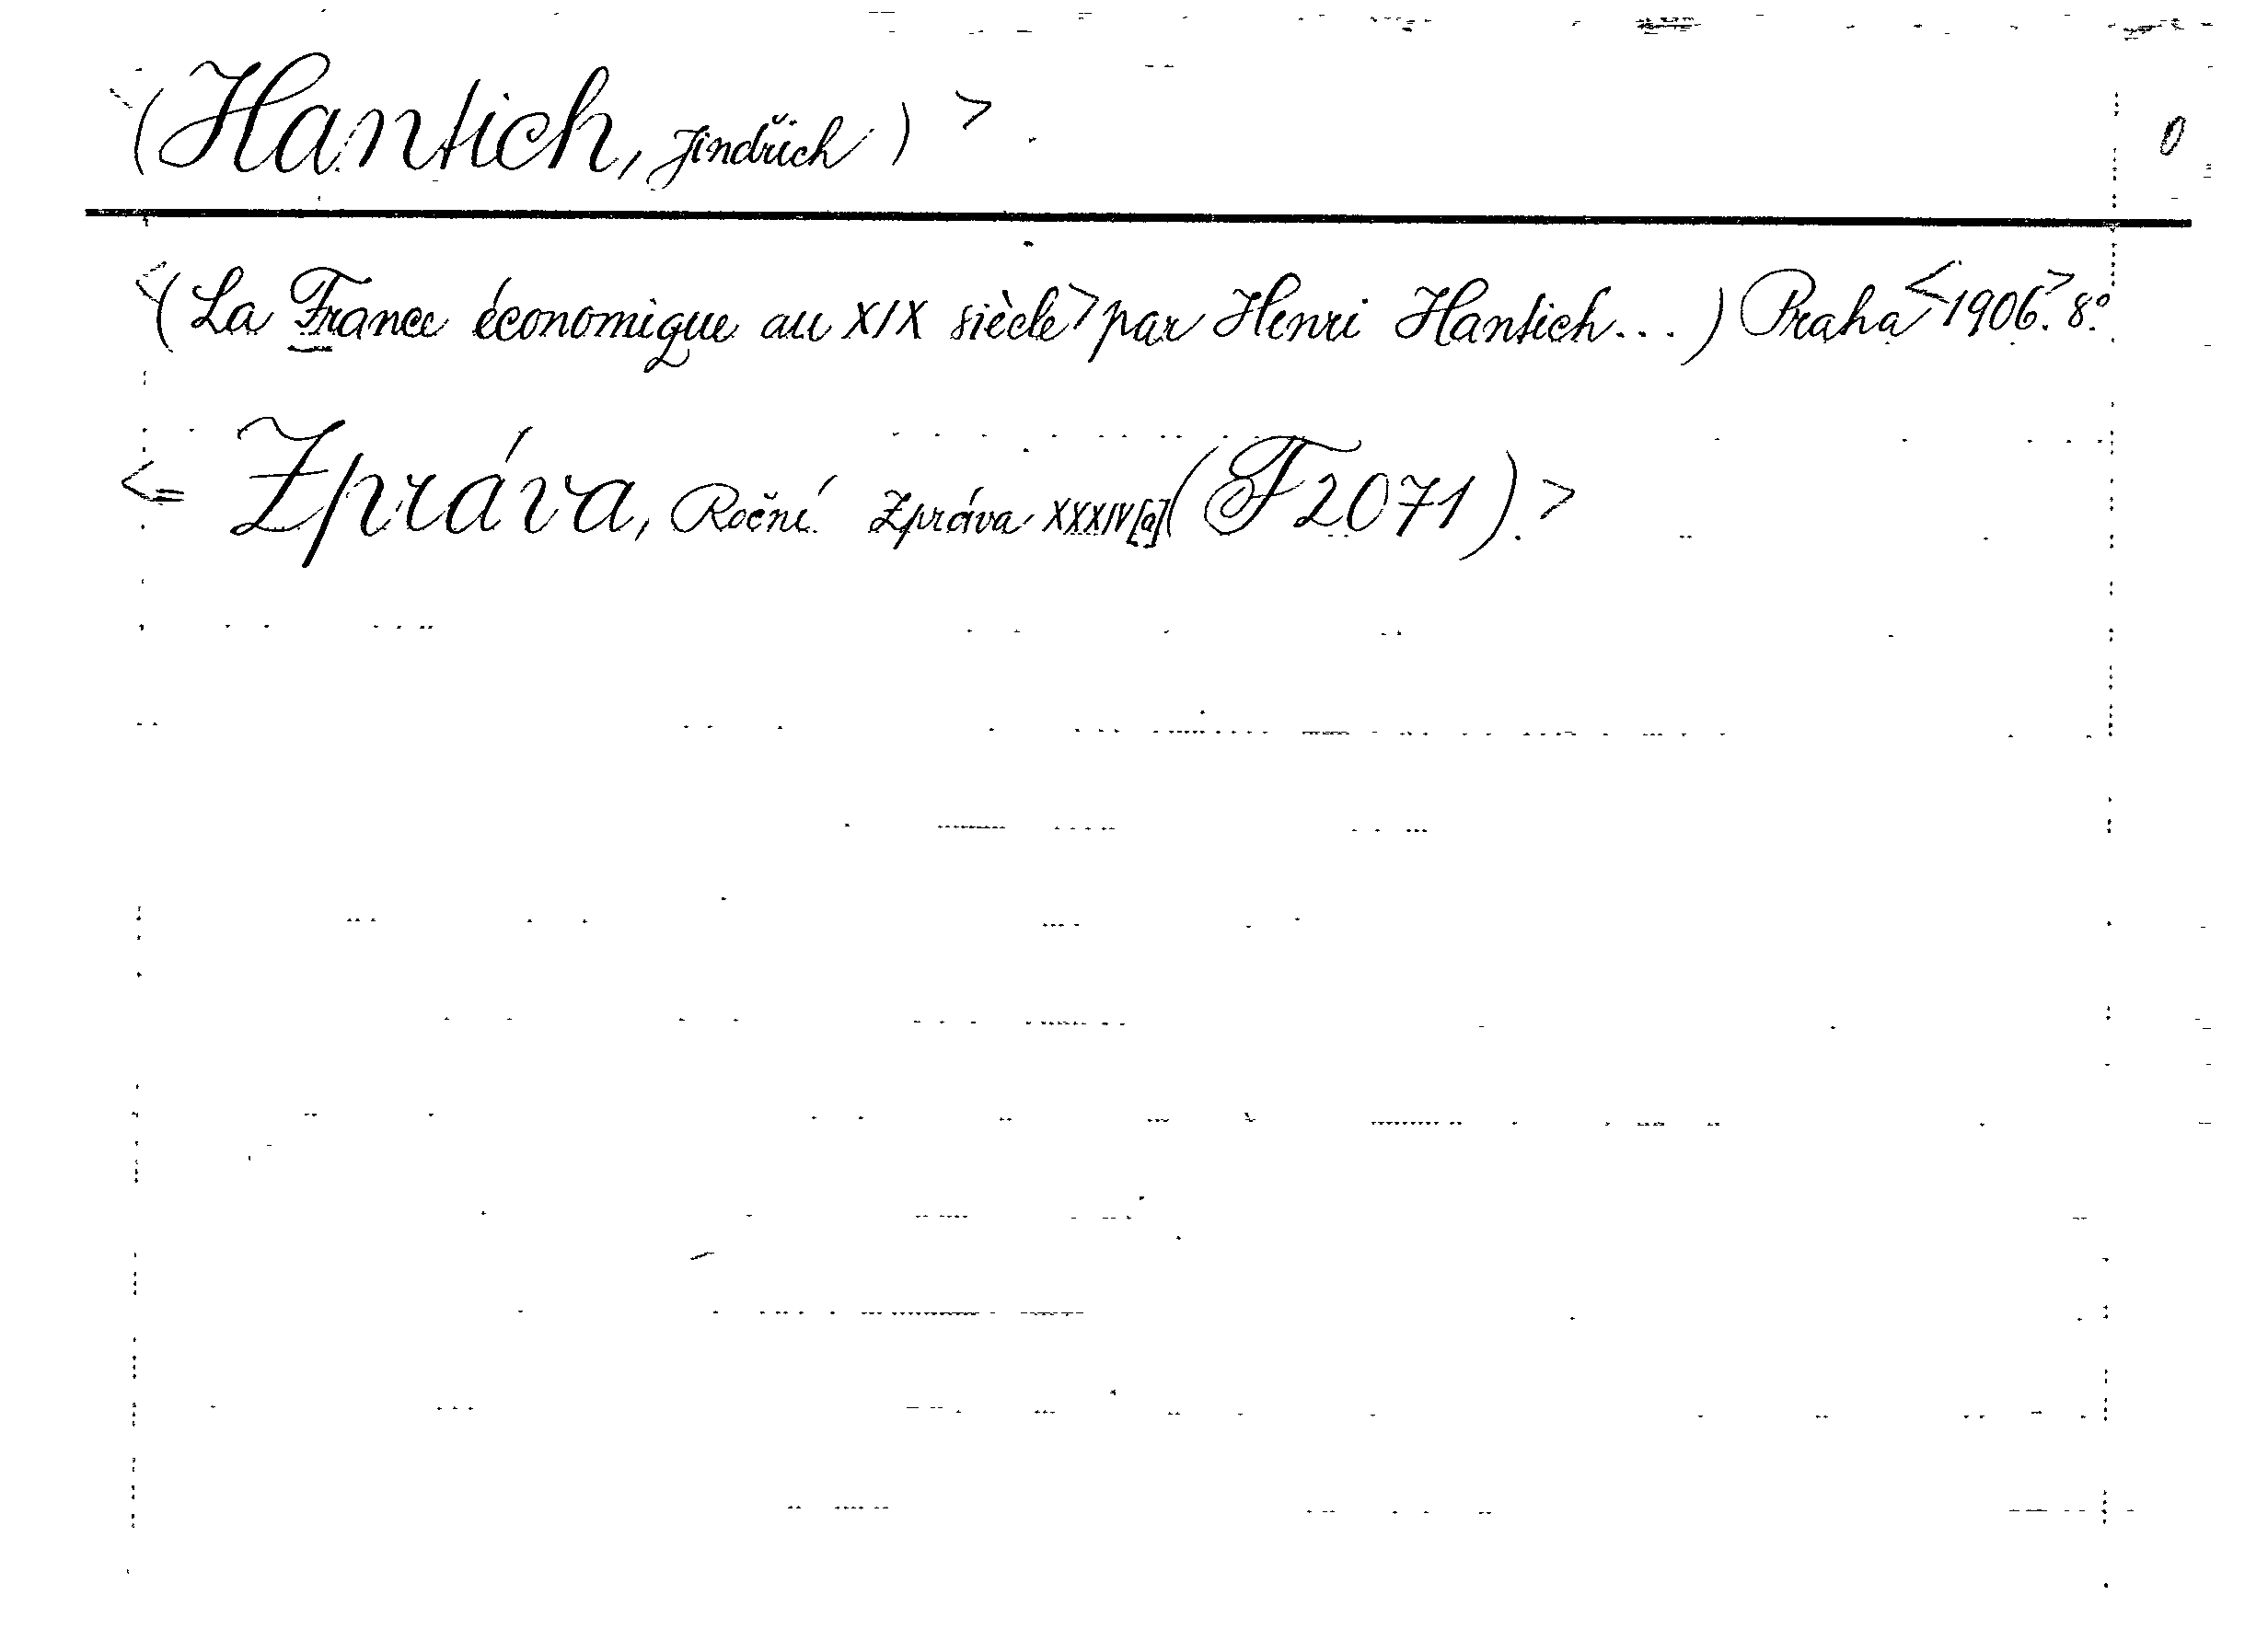 <(Hantich, Jindřich)> 0
<(La France économique au XIX siècle> par Henri Hantich...) Praha <1906.> 8.º
<= Zpráva, Roční. Zpráva XXXIV[a] (F 2071).>